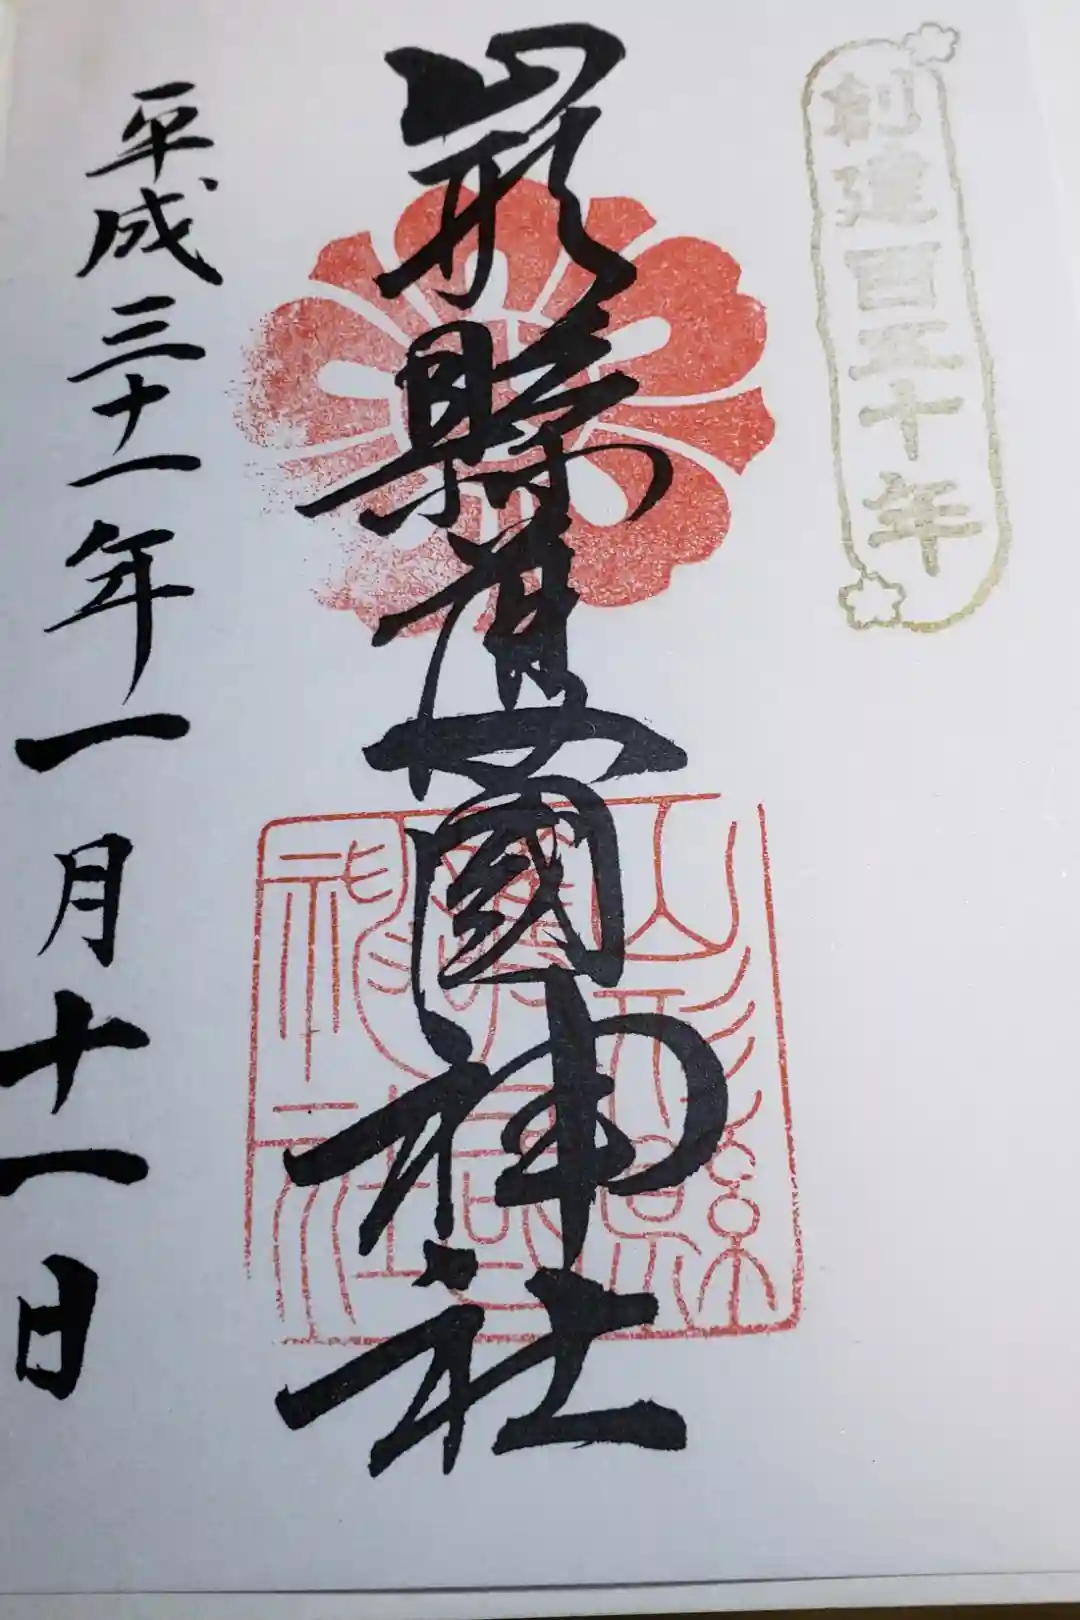 創建百五十年
山形縣護國神社
山形縣護國神社
平成三十一年一月十一日